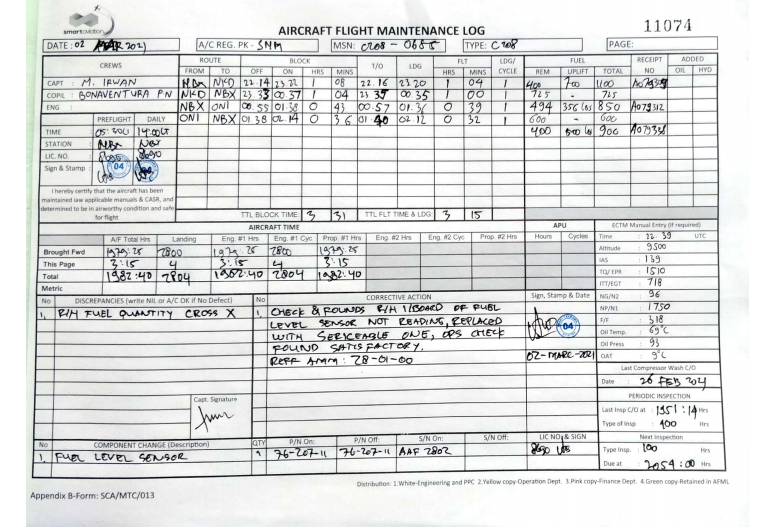 smartaviation
AIRCRAFT FLIGHT MAINTENANCE LOG
11074
DATE : 02 MAR 2021 A/C REG. PK - SNM MSN: C208 - 0685 TYPE: C208 PAGE:
CREWS ROUTE BLOCK T/O LDG FLT LDG/ CYCLE FUEL RECEIPT NO ADDED
FROM TO OFF ON HRS MINS HRS MINS REM UPLIFT TOTAL OIL HYD
CAPT : M. IRWAN NBX NKD 22 14 23.22 1 08 22.16 23 20 1 04 1 400 700 1100
COPIL : BONAVENTURA PN NKD NBX 23.33 00.37 1 04 23 35 00 35 1 00 1 725 - 725
ENG : NBX ONI 00.55 01.38 0 43 00.57 01.36 0 39 1 494 356 Lbs 850 A079312
ONI NBX 01 38 02 14 0 36 01 40 02 12 0 32 1 600 - 600
PREFLIGHT DAILY
400 500 Lb 900
TIME 14:00
STATION : NBX NBX
LIC. NO. : 8690
Sign & Stamp : 04
I hereby certify that the aircraft has been
maintained iaw applicable manuals & CASR, and
determined to be in airworthy condition and safe
for flight
TTL BLOCK TIME 3 31 TTL FLT TIME & LDG 3 15
AIRCRAFT TIME APU ECTM Manual Entry (if required)
A/F Total Hrs Landing Eng. #1 Hrs Eng. #1 Cyc Prop. #1 Hrs Eng. #2 Hrs Eng. #2 Cyc Prop. #2 Hrs Hours Cycles
Time : 22.39 UTC
Altitude : 9500
Brought Fwd 1979:25 2800 1979:25 2800 1979:25
IAS : 139
This Page 3:15 4 3:15 4 3:15
TQ/EPR : 1510
Total 1982:40 2804 1982:40 2804 1982:40
ITT/EGT : 718
Metric
NG/N2 : 96
No DISCREPANCIES (write NIL or A/C OK if No Defect) No CORRECTIVE ACTION Sign, Stamp & Date
NP/N1 : 1750
1, R/H FUEL QUANTITY CROSS X 1, CHECK & FOUNDS R/H I/BOARD OF FUEL
F/F : 318
LEVEL SENSOR NOT READING, REPLACED 04
Oil Temp. : 69°C
WITH SERICEABLE ONE, OPS CHECK
Oil Press : 93
FOUND SATISFACTORY.
REFF AMM : 28-01-00 02-MARC-2021
OAT : 9°C
Last Compressor Wash C/O
Date : 26 FEB 2021
PERIODIC INSPECTION
Capt. Signature
Last Insp C/O at : 1951:14 Hrs
Type of Insp : 400 Hrs
No COMPONENT CHANGE (Description) QTY P/N On: P/N Off: S/N On: S/N Off: LIC NO, & SIGN
Next Inspection
1, FUEL LEVEL SENSOR 1 76-207-11 76-207-11 AAF 2802 8690
Type Insp. : 100 Hrs
Due at : 2054:00 Hrs
Distribution: 1.White-Engineering and PPC 2.Yellow copy-Operation Dept. 3.Pink copy-Finance Dept. 4.Green copy-Retained in AFML
Appendix B-Form: SCA/MTC/013